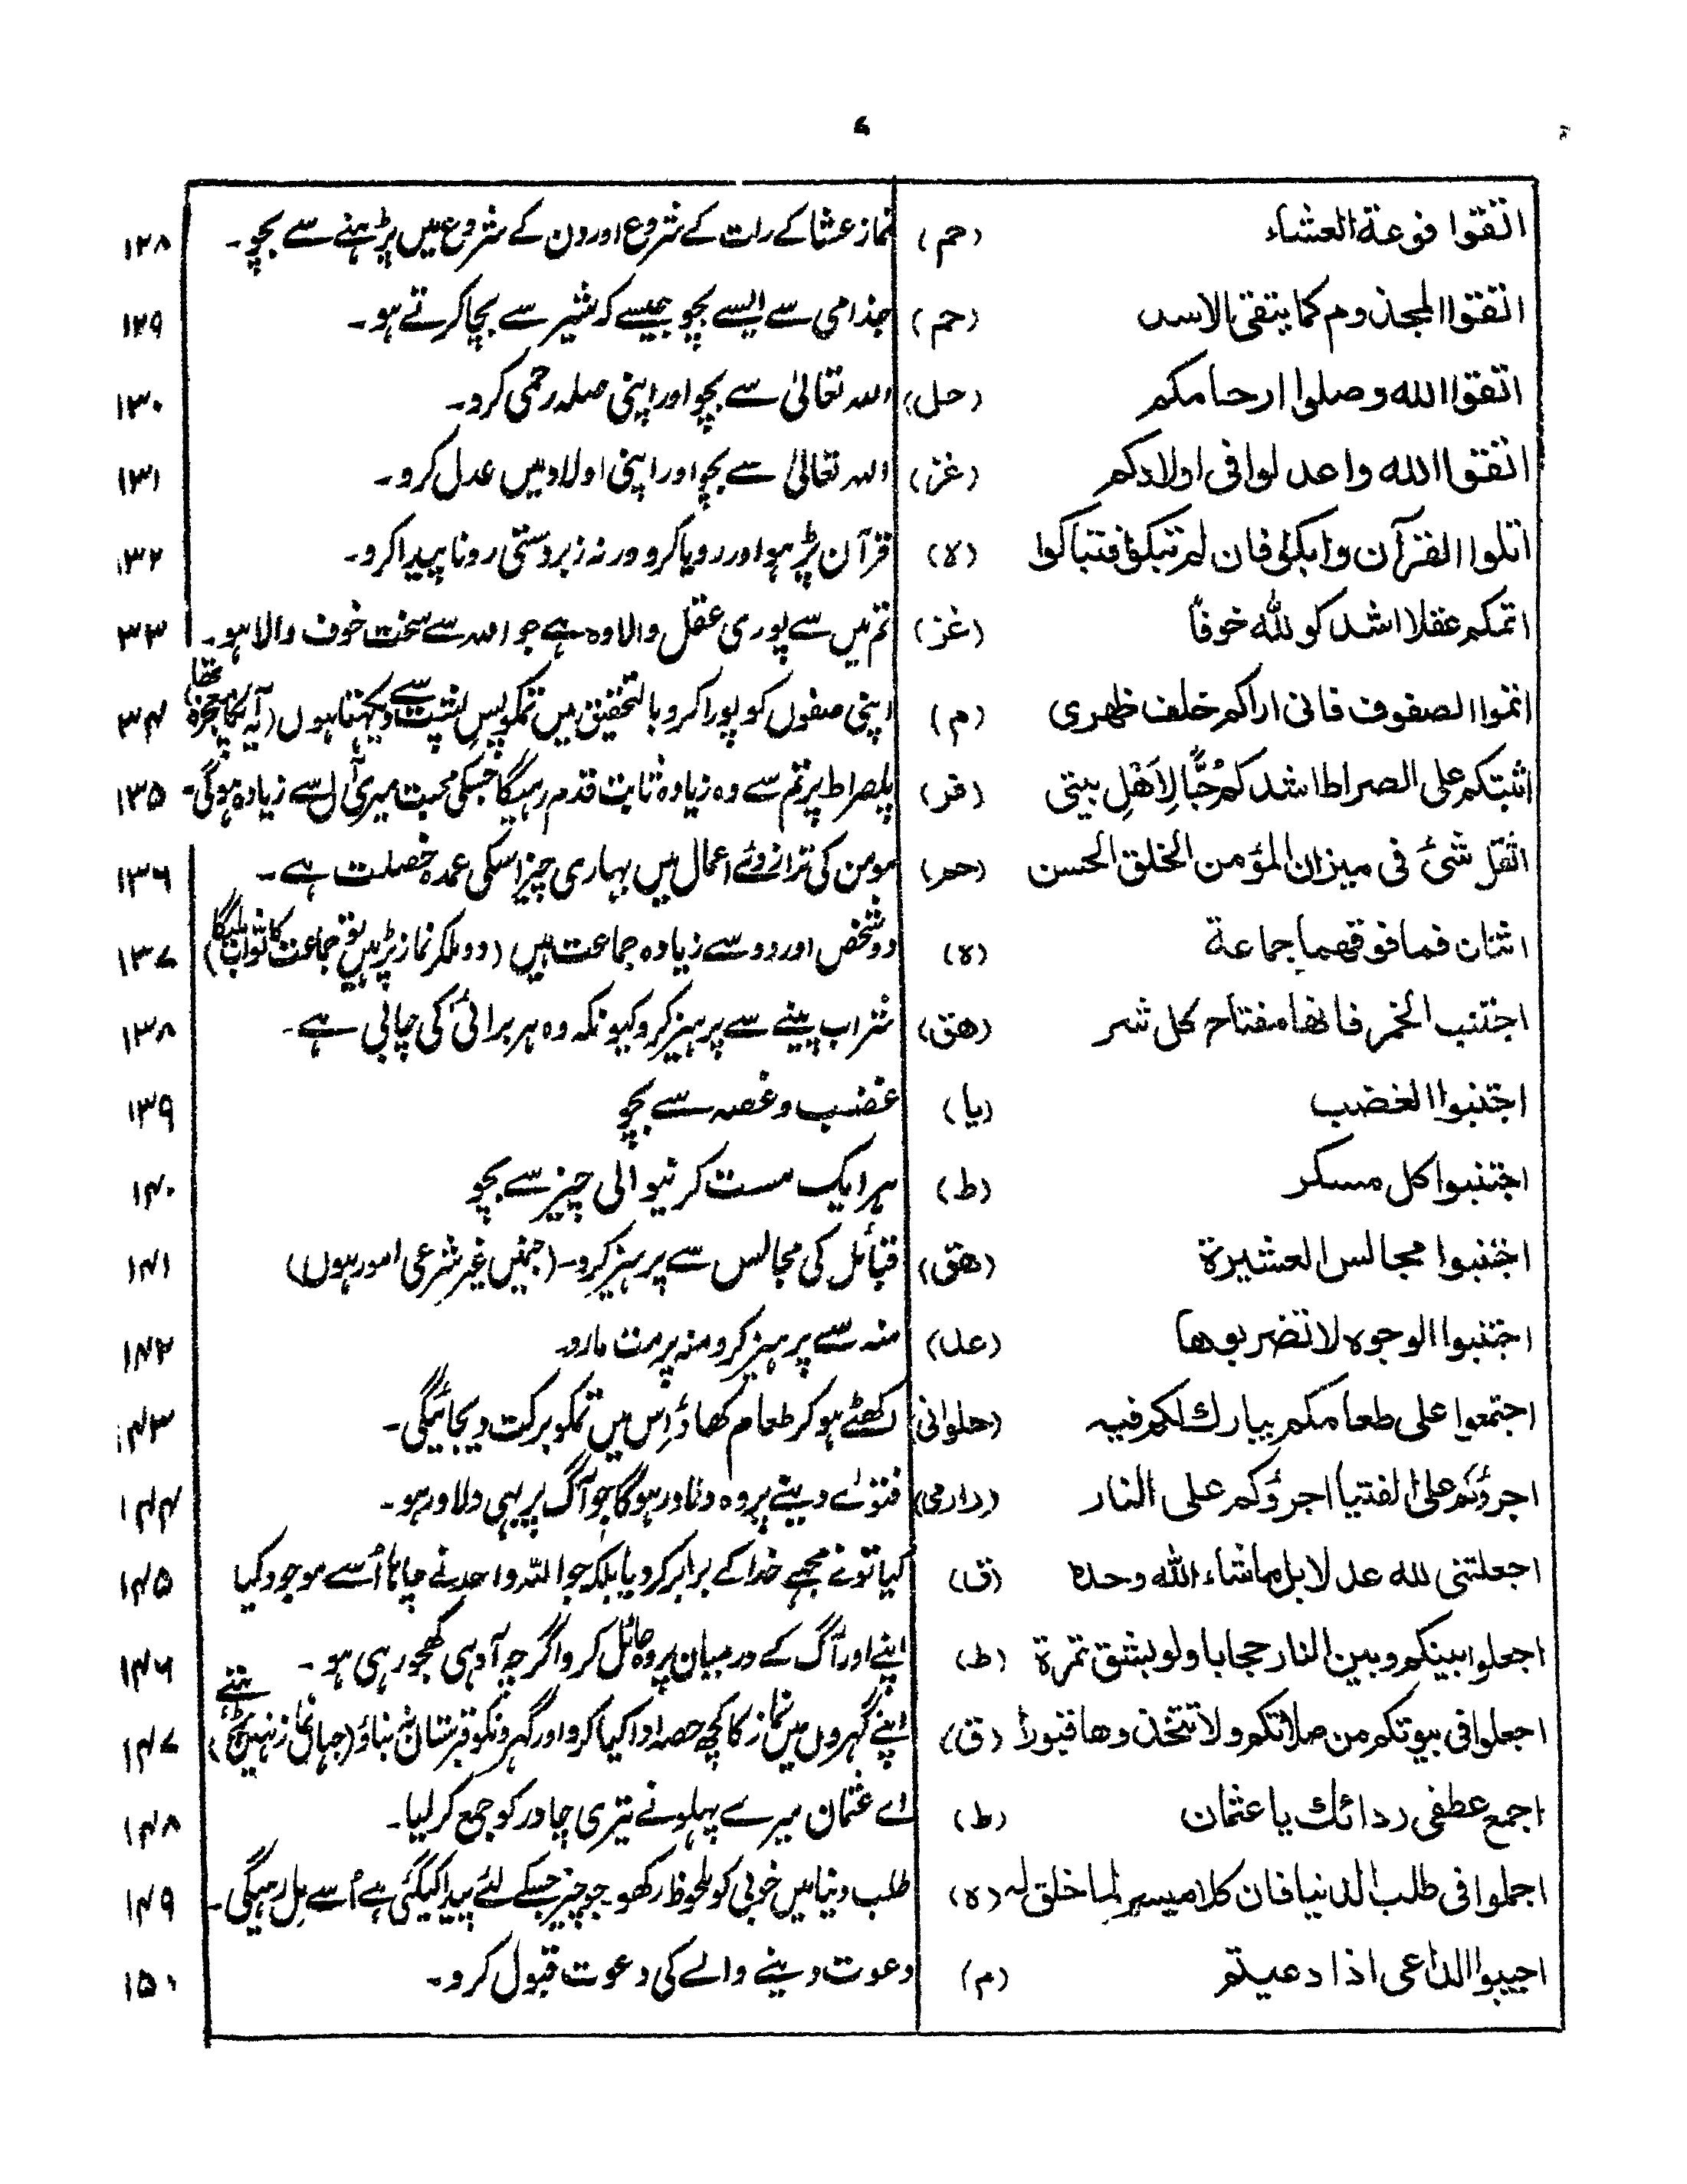 ۷
اتقوا فوعة العشاء (حم) نماز عشا کے رات کے شروع اور دن کے شروع میں پڑہنے سے بچو۔ ۱۲۸
اتقوا المجذوم کما یتقی الاسد (حم) جذامی سے ایسے بچو جیسے کہ شیر سے بچا کرتے ہو۔ ۱۲۹
اتقوا الله وصلوا ارحامکم (حل) اللہ تعالیٰ سے بچو اور اپنی صلہ رحمی کرو۔ ۱۳۰
اتقوا الله واعدلوا فی اولادکم (غز) اللہ تعالیٰ سے بچو اور اپنی اولاد میں عدل کرو۔ ۱۳۱
اتلوا القرآن وابکوا فان لم تبکوا فتباکوا (ہ) قرآن پڑہو اور رویا کرو ورنہ زبردستی رونا پیدا کرو۔ ۱۳۲
اتمکم عقلا اشدکم لله خوفًا (غز) تم میں سے پوری عقل والا وہ ہے جو اللہ سے سخت خوف والا ہو۔ ۳۳
اتموا الصفوف فانی اراکم خلف ظهری (م) اپنی صفوں کو پورا کرو بالتحقیق میں تمکو پس پشت سے دیکہتا ہوں (یہ آپکا معجزہ تھا) ۳۴
اثبتکم علی الصراط اشدکم حُبًّا لِاَهْلِ بیتی (فر) پلصراط پر تم سے وہ زیادہ ثابت قدم رہیگا جسکی محبت میری آل سے زیادہ ہوگی۔ ۱۳۵
اثقل شئ فی میزان المؤمن الخلق الحسن (حم) مومن کی ترازوئے اعمال میں بہاری چیز اسکی عمدہ خصلت ہے۔ ۱۳۶
اثنان فما فوقهما جماعة (ہ) دو شخص اور دو سے زیادہ جماعت ہیں (دو ملکر نماز پڑہیں تو جماعت کا ثواب ملیگا) ۱۳۷
اجتنب الخمر فانها مفتاح کل شر (هق) شراب پینے سے پرہیز کرو کیونکہ وہ ہر برائی کی چابی ہے۔ ۱۳۸
اجتنبوا الغضب (یا) غضب و غصہ سے بچو ۱۳۹
اجتنبوا کل مسکر (ط) ہر ایک مست کرنیوالی چیز سے بچو ۱۴۰
اجتنبوا مجالس العشیرة (هق) قبائل کی مجالس سے پرہیز کرو۔ (جنمیں غیر شرعی امور ہوں) ۱۴۱
اجتنبوا الوجوه لا تضربوها (عد) منہ سے پرہیز کرو منہ پر مت مارو۔ ۱۴۲
اجتمعوا علی طعامکم یبارك لکم فیه (حلوانی) اکھٹے ہو کر طعام کھاؤ اِس میں تمکو برکت دیجائیگی۔ ۱۴۳
اجرؤکم علی الفتیا اجرؤکم علی النار (دارمی) فتوٰے دینے پر وہ دلاور ہوگا جو آگ پر بہی دلاور ہو۔ ۱۴۴
اجعلتنی لله عدلا بل ماشاء الله وحده (ق) کیا تونے مجہے خدا کے برابر کر دیا بلکہ جو اللہ واحد نے چاہا اُسے موجود کیا ۱۴۵
اجعلوا بینکم وبین النار حجابا ولو بشق تمرة (ط) اپنے اور آگ کے درمیان پردہ حائل کرو اگرچہ آدہی کھجور ہی ہو۔ ۱۴۶
اجعلوا فی بیوتکم من صلاتکم ولا تتخذوها قبورا (ق) اپنے گہروں میں نماز کا کچھ حصہ ادا کیا کرو اور گہرونکو قبرستان نہ بناؤ (جہاں نماز نہیں پڑہتے) ۱۴۷
اجمع عطفی ردائك یا عثمان (ط) اے عثمان میرے پہلو نے تیری چادر کو جمع کر لیا۔ ۱۴۸
اجملوا فی طلب الدنیا فان کلا میسر لما خلق له (ہ) طلب دنیا میں خوبی کو ملحوظ رکھو جو چیز جسکے لئے پیدا کیگئی ہے اُسے مل رہیگی۔ ۱۴۹
اجیبوا الداعی اذا دعیتم (م) دعوت دینے والے کی دعوت قبول کرو۔ ۱۵۰